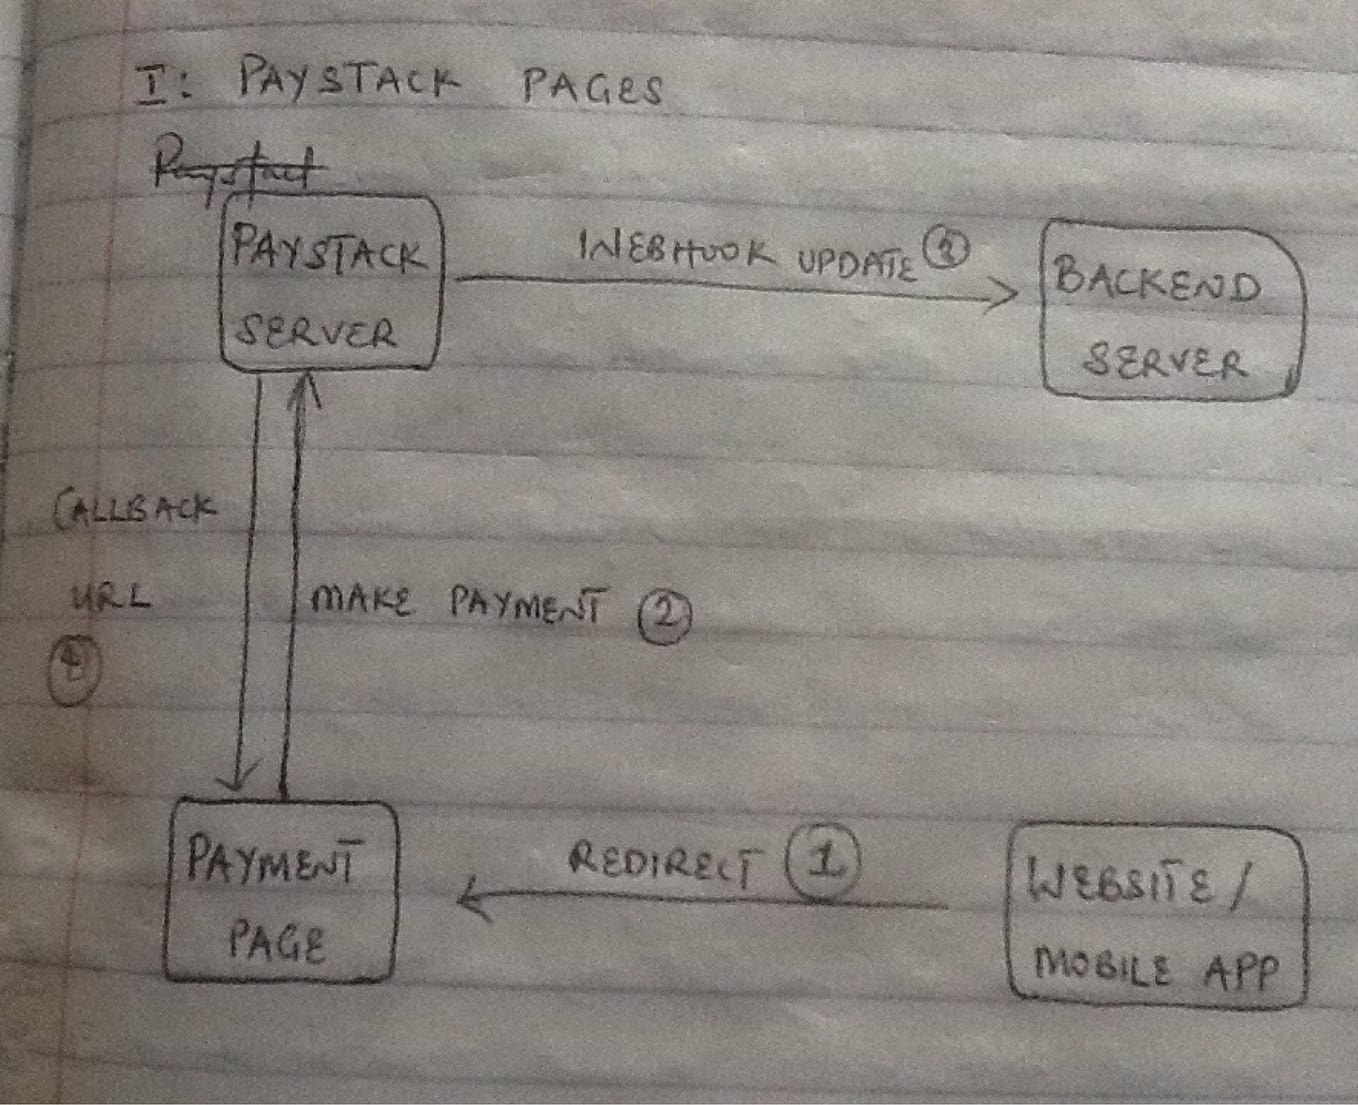 I: PAYSTACK PAGES
Paystact
PAYSTACK
SERVER
WEBHOOK UPDATE 3
BACKEND
SERVER
CALLBACK
URL
4
MAKE PAYMENT 2
PAYMENT
PAGE
REDIRECT 1
WEBSITE /
MOBILE APP